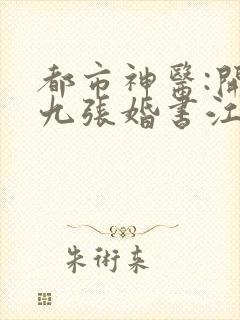 都市神醫:開
九張婚書江
朱術束